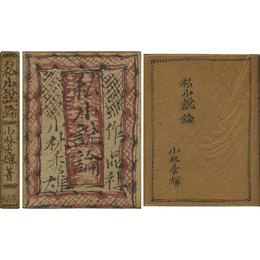 私小説論
小林秀雄著
作品社
私小説論
小林秀雄
私小説論
小林秀雄